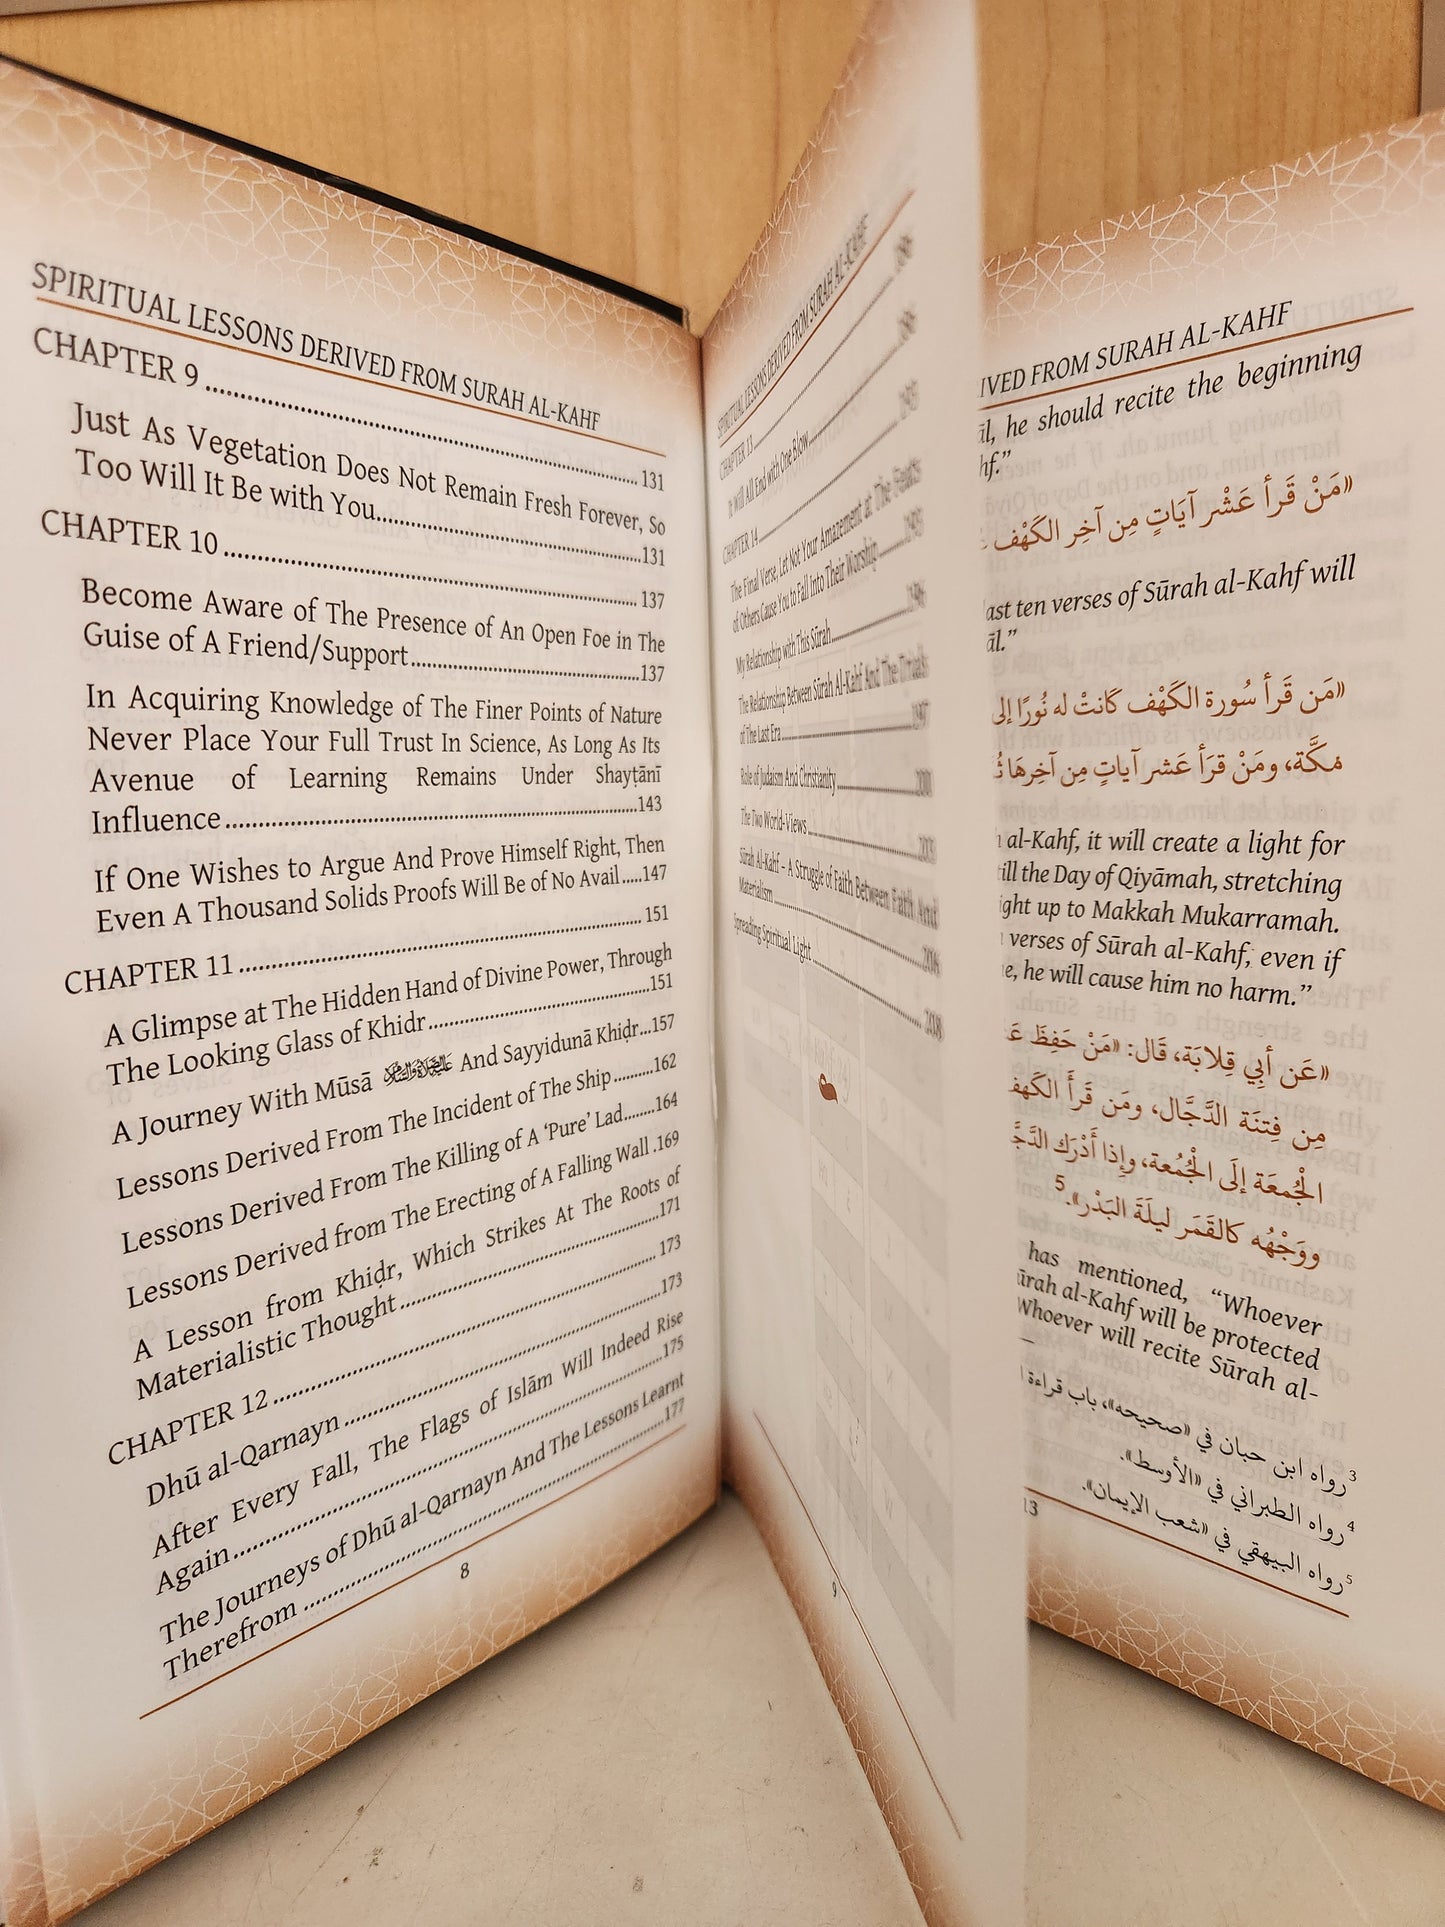 SPIRITUAL LESSONS DERIVED FROM SURAH AL-KAHF
CHAPTER 9 ........ 131
Just As Vegetation Does Not Remain Fresh Forever, So
Too Will It Be with You........131
CHAPTER 10 ........ 137
Become Aware of The Presence of An Open Foe in The
Guise of A Friend/Support........137
In Acquiring Knowledge of The Finer Points of Nature
Never Place Your Full Trust In Science, As Long As Its
Avenue of Learning Remains Under Shayṭānī
Influence........143
If One Wishes to Argue And Prove Himself Right, Then
Even A Thousand Solids Proofs Will Be of No Avail.....147
CHAPTER 11 ........ 151
A Glimpse at The Hidden Hand of Divine Power, Through
The Looking Glass of Khidr........151
A Journey With Mūsā And Sayyidunā Khiḍr...157
Lessons Derived From The Incident of The Ship.........162
Lessons Derived From The Killing of A ‘Pure’ Lad.......164
Lessons Derived from The Erecting of A Falling Wall .169
A Lesson from Khiḍr, Which Strikes At The Roots of
Materialistic Thought........171
CHAPTER 12 ........ 173
Dhū al-Qarnayn ........173
After Every Fall, The Flags of Islām Will Indeed Rise
Again........175
The Journeys of Dhū al-Qarnayn And The Lessons Learnt
Therefrom ........177
8
SPIRITUAL LESSONS DERIVED FROM SURAH AL-KAHF
CHAPTER 13........
It Will All End with One Blow........
CHAPTER 14........
The Final Verse, Let Not Your Amazement at The Feats
of Others Cause You to Fall Into Their Worship........
My Relationship with This Sūrah........
The Relationship Between Sūrah Al-Kahf And The Trials
of The Last Era........197
Role of Judaism And Christianity........
The Two World-Views........203
Sūrah Al-Kahf – A Struggle of Faith Between Faith And
Materialism........
Spreading Spiritual Light........
9
IVED FROM SURAH AL-KAHF
he should recite the beginning
hf.”
«مَنْ قَرأ عَشْر آيَاتٍ مِن آخِر الكَهْف
last ten verses of Sūrah al-Kahf will
āl.”
«مَن قَرأ سُورة الكَهْف كَانتْ له نُورًا إلى
مكَّة، ومَنْ قرَأ عَشر آياتٍ مِن آخِرهَا
al-Kahf, it will create a light for
till the Day of Qiyāmah, stretching
ight up to Makkah Mukarramah.
verses of Sūrah al-Kahf, even if
he will cause him no harm.”
«عَن أبي قِلابَة، قَال: «مَنْ حَفِظَ
مِن فِتنَة الدَّجَّال، ومَن قَرأَ الكَهف
الجُمعَة إلَى الجُمُعة، وإذا أَدْرَك
ووَجْهُه كالقَمَر ليلَةَ البَدْر».5
has mentioned, “Whoever
ūrah al-Kahf will be protected
Whoever will recite Sūrah al-
3 رواه ابن حبان في «صحيحه»، باب قراءة
4 رواه الطبراني في «الأوسط».
5 رواه البيهقي في «شعب الإيمان».
13